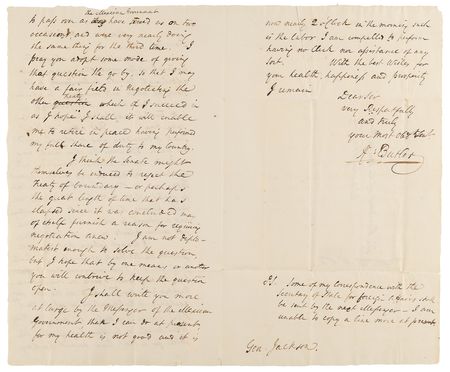 the Mexican Government
to pass over as they have served us on two
occasions and were very nearly doing
the same thing for the third time. I
pray you adopt some mode of giving
that question the go by, so that I may
have a fair field in negotiating the
treaty
other question which if I succeed in
as I hope I shall, it will enable
me to retire in peace having performed
my full share of duty to my Country.
I think the Senate might
themselves be induced to reject the
treaty of boundary — or perhaps
the great length of time that has
elapsed since it was concluded may
of itself furnish a reason for requiring
negotiation anew. I am not diplo-
matist enough to solve the question
but I hope that by one means or another
you will contrive to keep the question
open. I shall write you more
at large by the Messenger of the Mexican
Government than I can do at present
for my health is not good and it is
now nearly 2 oClock in the morning such
is the labor I am compelled to perform
having no Clerk nor assistance of any
sort. With the best wishes for
your health, happiness and prosperity
I remain
Dear Sir
very Respectfully
and truly
your Most Obt Servt
A. Butler
PS. Some of my Correspondence with the
Secretary of State for foreign Affairs shall
be sent by the next Messenger — I am
unable to copy a line more at present
Gen. Jackson.